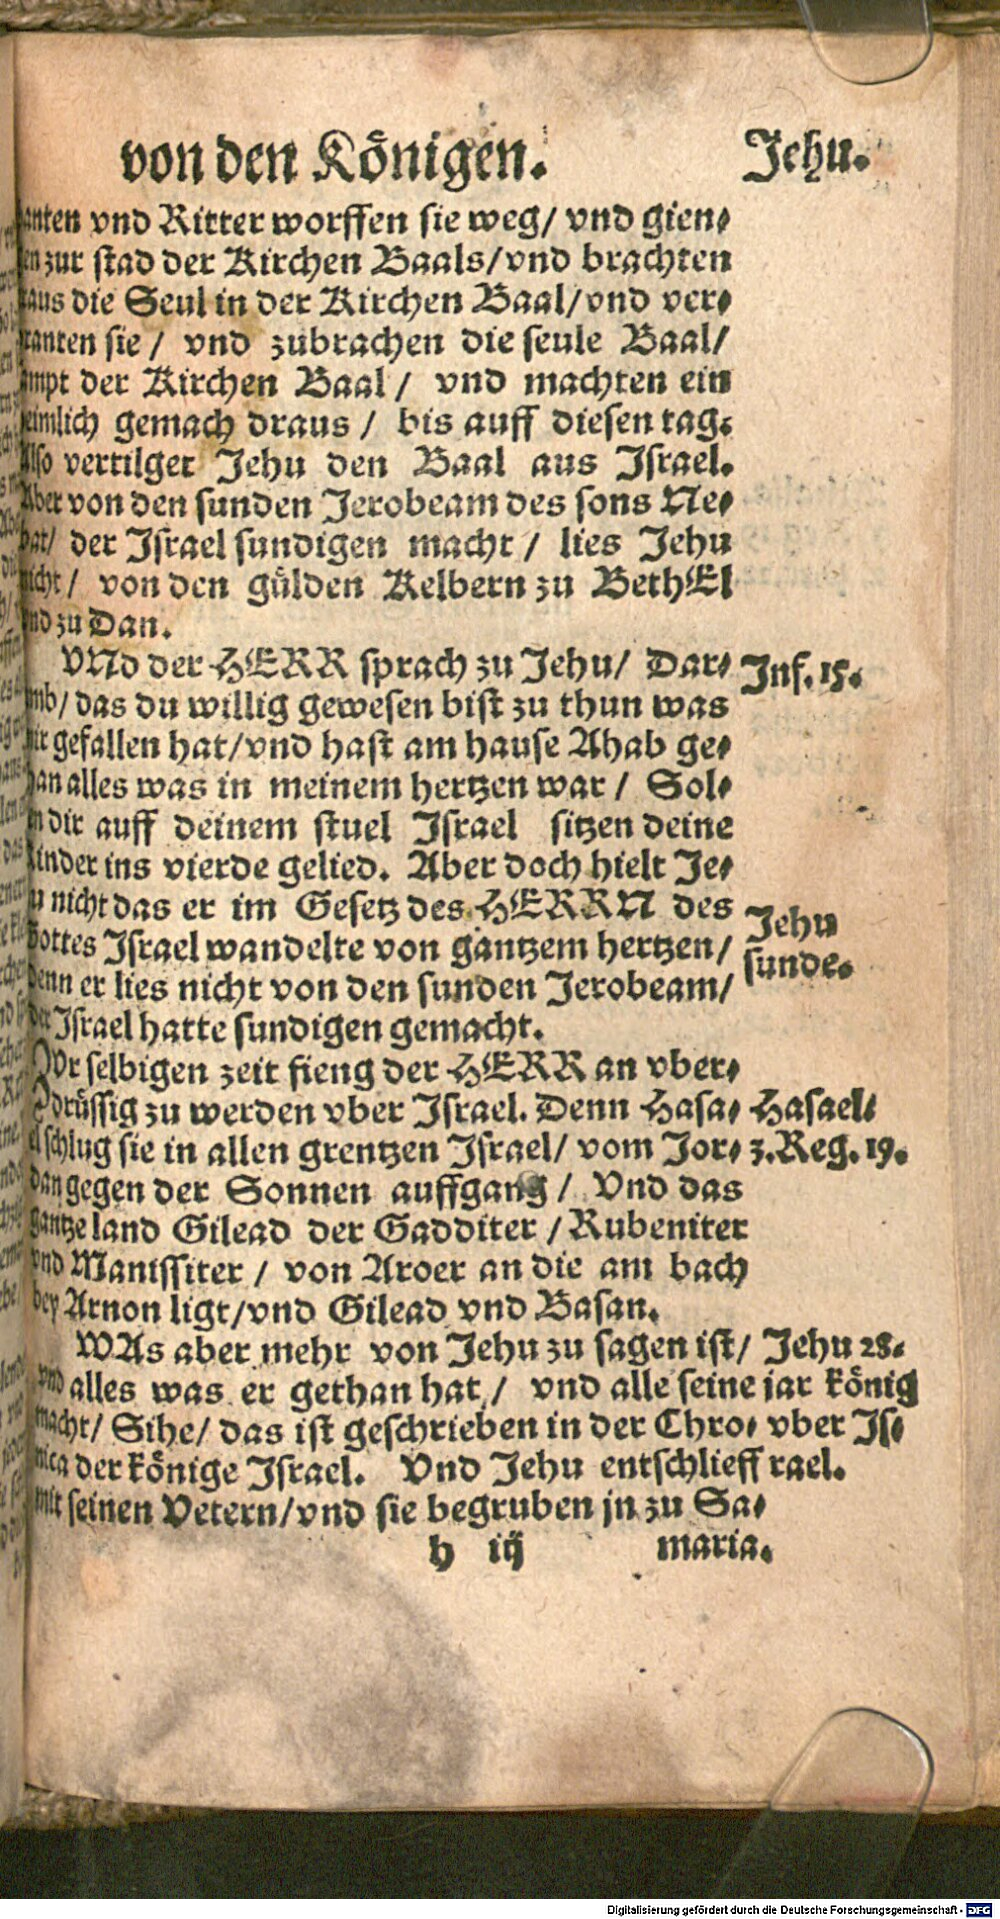 von den Königen. Jehu.
anten vnd Ritter worffen sie weg/ vnd gien⸗
en zur stad der Kirchen Baals/ vnd brachten
aus die Seul in der Kirchen Baal/ vnd ver⸗
ranten sie / vnd zubrachen die seule Baal/
ampt der Kirchen Baal / vnd machten ein
heimlich gemach draus / bis auff diesen tag.
Also vertilget Jehu den Baal aus Israel.
Aber von den sunden Jerobeam des sons Ne⸗
bat/ der Israel sundigen macht / lies Jehu
nicht / von den gülden Kelbern zu BethEl
vnd zu Dan.
VNd der HERR sprach zu Jehu/ Dar⸗
umb/ das du willig gewesen bist zu thun was
mir gefallen hat/ vnd hast am hause Ahab ge⸗
han alles was in meinem hertzen war / Sol⸗
en dir auff deinem stuel Israel sitzen deine
Kinder ins vierde gelied. Aber doch hielt Je⸗
u nicht das er im Gesetz des HERRN des
Gottes Israel wandelte von gantzem hertzen/
denn er lies nicht von den sunden Jerobeam/
der Israel hatte sundigen gemacht.
Inf. 15.
Jehu
sunde.
ZVr selbigen zeit fieng der HERR an vber⸗
drüssig zu werden vber Israel. Denn Hasa⸗
el schlug sie in allen grentzen Israel/ vom Jor⸗
dan gegen der Sonnen auffgang / Vnd das
gantze land Gilead der Gadditer / Rubeniter
vnd Manissiter / von Aroer an die am bach
bey Arnon ligt/ vnd Gilead vnd Basan.
Hasael⸗
3. Reg. 19.
WAs aber mehr von Jehu zu sagen ist/
vnd alles was er gethan hat / vnd alle seine
macht/ Sihe/ das ist geschrieben in der Chro⸗
nica der könige Israel. Vnd Jehu entschlieff
mit seinen Vetern/ vnd sie begruben jn zu Sa⸗
Jehu 28.
iar könig
vber Is⸗
rael.
h iij maria.
Digitalisierung gefördert durch die Deutsche Forschungsgemeinschaft - DFG